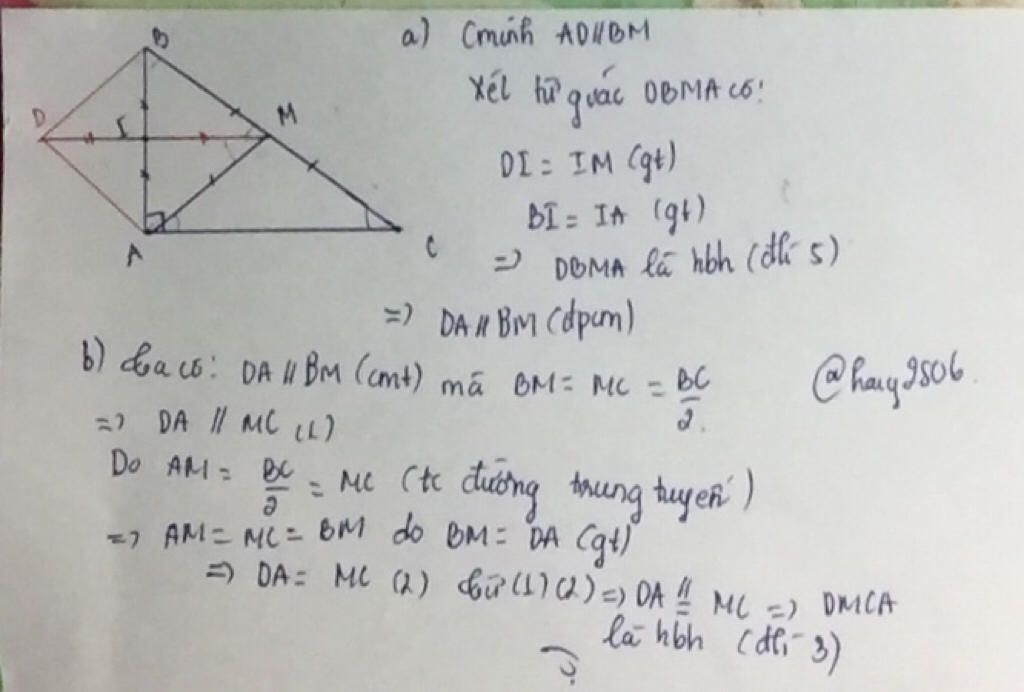 B
D
I
M
A
C
a) Cminh AD//BM
Xét tứ giác DBMA có:
DI = IM (gt)
BI = IA (gt)
=> DBMA là hbh (đlí 5)
=> DA // BM (đpcm)
b) Ta có: DA // BM (cmt) mà BM = MC = BC/2.
@hauy2506.
=> DA // MC (1)
Do AM = BC/2 = MC (tc đường trung tuyến)
=> AM = MC = BM do BM = DA (gt)
=> DA = MC (2) Từ (1) (2) => DA // = MC => DMCA
là hbh (đlí 3)